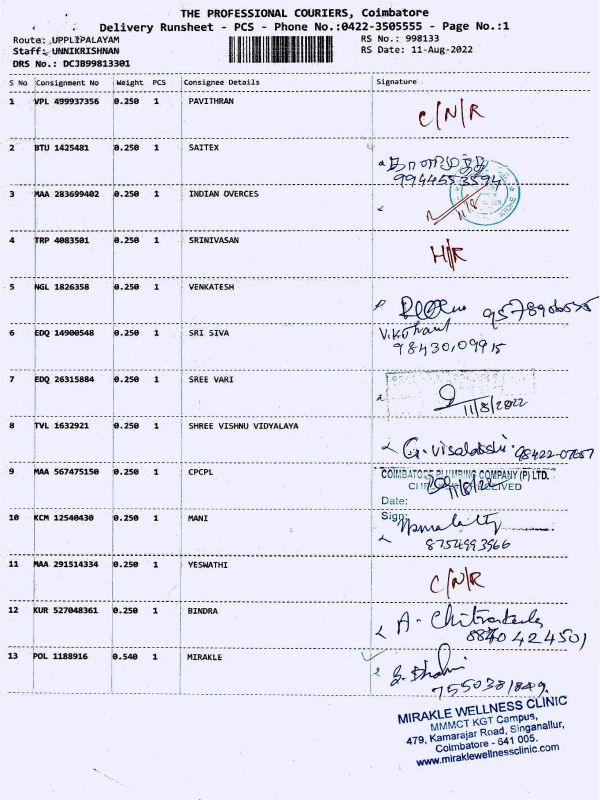 THE PROFESSIONAL COURIERS, Coimbatore
Delivery Runsheet - PCS - Phone No.:0422-3505555 - Page No.:1
Route: UPPLIPALAYAM RS No.: 998133
Staff: UNNIKRISHNAN RS Date: 11-Aug-2022
DRS No.: DCJB99813301
S No Consignment No Weight PCS Consignee Details Signature
1 VPL 499937356 0.250 1 PAVITHRAN C/N/R
2 BTU 1425481 0.250 1 SAITEX
9944553594
3 MAA 283699402 0.250 1 INDIAN OVERCES 11/8
4 TRP 4083501 0.250 1 SRINIVASAN H/R
5 NGL 1826358 0.250 1 VENKATESH
6 EDQ 14900548 0.250 1 SRI SIVA
98430109915
7 EDQ 26315884 0.250 1 SREE VARI
11/8/2022
8 TVL 1632921 0.250 1 SHREE VISHNU VIDYALAYA
G. Visalakshi
9 MAA 567475150 0.250 1 CPCPL COIMBATORE PLUMBING COMPANY (P) LTD.
11/8/22
Date:
Sign:
10 KCM 12540430 0.250 1 MANI
8754993966
11 MAA 291514334 0.250 1 YESWATHI C/N/R
12 KUR 527048361 0.250 1 BINDRA
13 POL 1188916 0.540 1 MIRAKLE
7550381849.
MIRAKLE WELLNESS CLINIC
MMMCT KGT Campus,
479, Kamarajar Road, Singanallur,
Coimbatore - 641 005.
www.miraklewellnessclinic.com